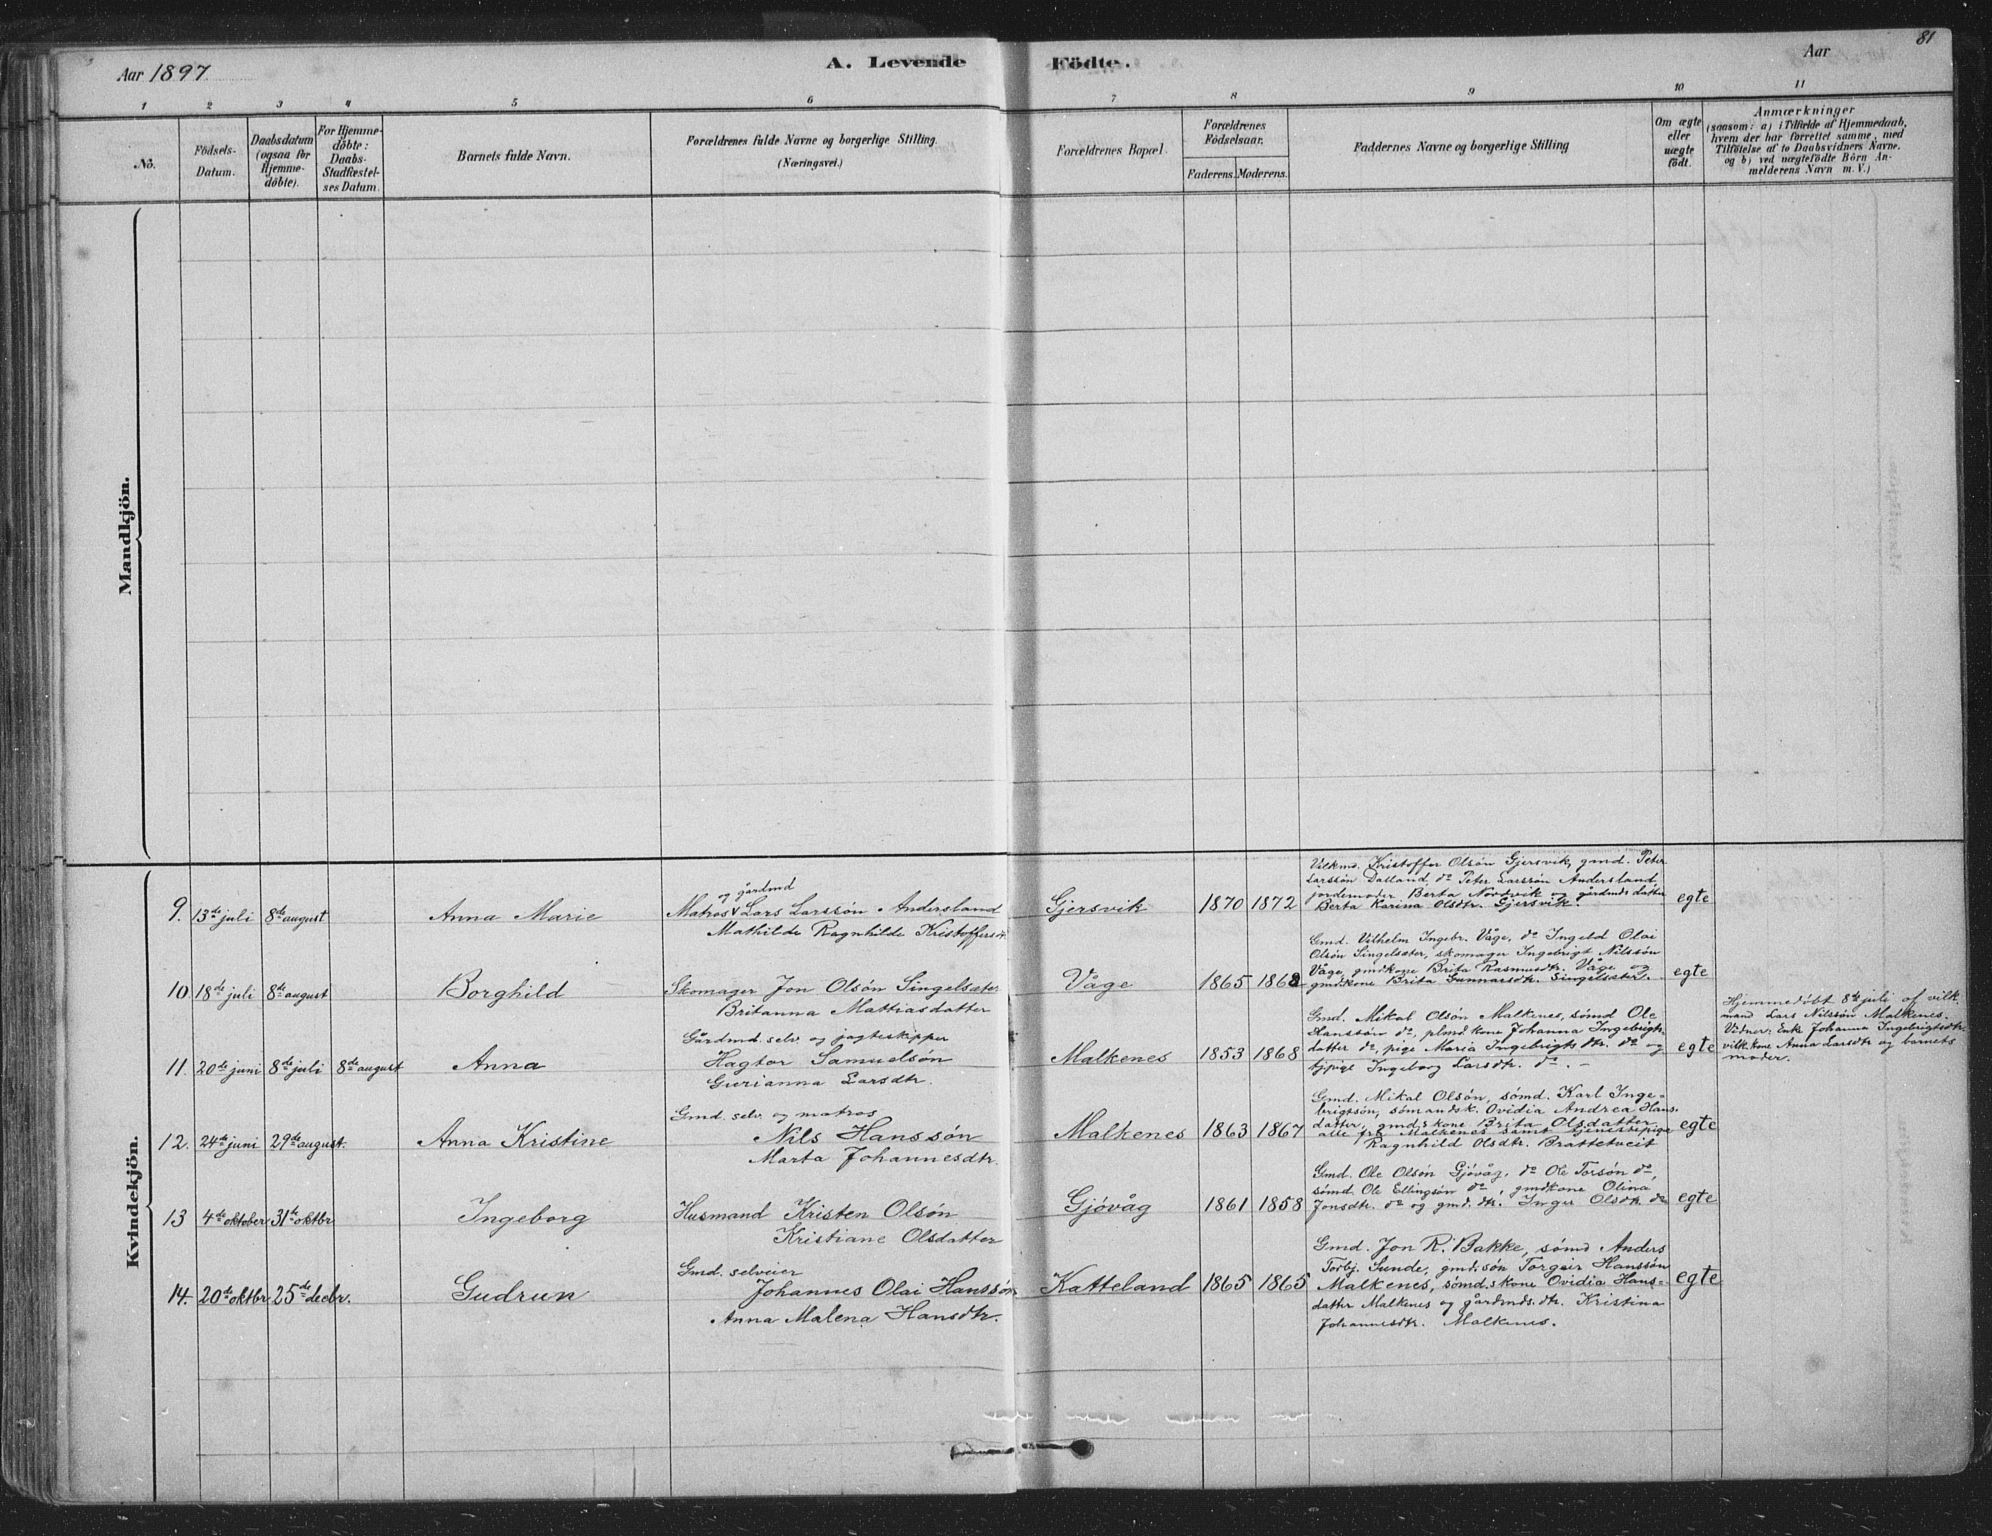 Aar 1897
A. Levende Födte.
Aar
81
1 2 3 4 5 6 7 8 9 10 11
No.
Födsels-
Datum.
Daabsdatum
(ogsaa for
Hjemme-
döbte).
For Hjemme-
döbte:
Daabs-
Stadfæstel-
ses Datum.
Barnets fulde Navn.
Forældrenes fulde Navne og borgerlige Stilling.
(Næringsvei.)
Forældrenes Bopæl.
Forældrenes
Födselsaar.
Faderens. Moderens.
Faddernes Navne og borgerlige Stilling
Om ægte
eller
uægte
födt.
Anmærkninger
(saasom: a) i Tilfælde af Hjemmedaab,
hvem der har forrettet samme, med
Tilföielse af to Daabsvidners Navne,
og b) ved uægtefödte Börn An-
melderens Navn m. V.)
Mandkjön.
Kvindekjön.
9. 13de juli 8de august
Anna Marie
og gårdmd
Matros Lars Larssön Andersland
Mathilde Ragnhilde Kristoffersdtr.
Gjersvik 1870 1872
Vilkmd. Kristoffer Olsön Gjersvik, gmd. Peter
Larssön Dalland, do Peter Larssön Andersland,
jordemoder Berta Nordvik og gårdmds datter
Berta Karina Olsdtr. Gjersvik.
egte
10 18de juli 8de august
Borghild
Skomager Jon Olsön Singelsæter
Britanna Mattiasdatter
Våge 1865 1868
Gmd. Vilhelm Ingebr. Våge, do Ingeld Olai
Olsön Singelsæter, skomager Ingebrigt Nilssön
Våge, gmdkone Brita Rasmusdtr. Våge og
gmdkone Brita Gunnarsdtr. Singelsæter.
egte
11. 20de juni 8de juli 8de august
Anna
Gårdmd. selv. og jagteskipper
Hagtor Samuelsön
Gurianna Larsdtr.
Malkenes 1853 1868
Gmd. Mikal Olsön Malkenes, sömd Ole
Hanssön do, plmd. kone Johanna Ingebrigts-
datter do, pige Maria Ingebrigtsdtr. do og
tjpige Ingeborg Larsdtr. do. -
egte
Hjemmedöbt 8de juli af vilk-
mand Lars Nilssön Malkenes.
Vidner: Enke Johanna Ingebrigtsdtr.
vilk.kone Anna Larsdtr og barnets
moder.
12. 24de juni 29de august.
Anna Kristine
Gmd. selv. og matros
Nils Hanssön
Marta Johannesdtr.
Malkenes 1863 1867
Gmd. Mikal Olsön, sömd. Karl Inge-
brigtsön, sömandsk. Ovidia Andrea Hans-
datter, gmds kone Brita Olsdatter
alle fra Malkenes samt tjenestepige
Ragnhild Olsdtr. Brattetveit
egte
13 4de oktober 31te oktbr
Ingeborg
Husmand Kristen Olsön
Kristiane Olsdatter
Gjövåg 1861 1858
Gmd. Ole Olsön Gjövåg, do Ole Torsön do,
sömd. Ole Ellingsön do, gmdkone Olina
Jonsdtr. do og gmd. dtr. Inger Olsdtr. do
egte
14. 20de oktbr. 25de decbr.
Gudrun
Gmd. selveier
Johannes Olai Hanssön
Anna Malena Hansdtr.
Katteland 1865 1865
Gmd. Jon R. Bakke, sömd Anders
Torbj. Sunde, gmd. sön Torgeir Hanssön
Malkenes, sömd. skone Ovidia Hans-
datter Malkenes og gårdmds. dtr. Kristina
Johannesdtr. Malkenes.
egte